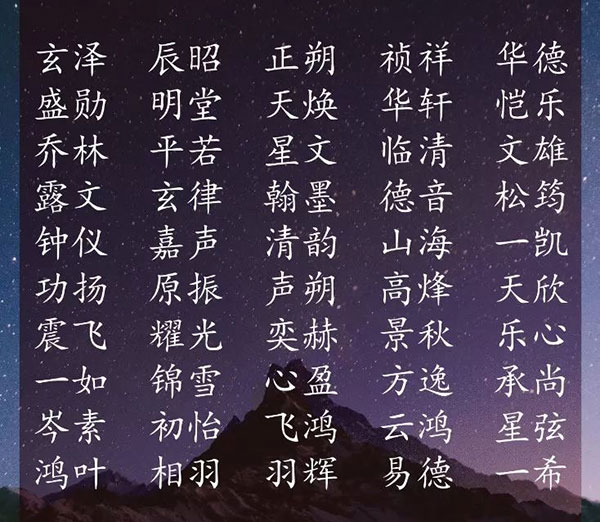 玄泽 辰昭 正朔 祯祥 华德
盛勋 明堂 天焕 华轩 恺乐
乔林 平若 星文 临清 文雄
露文 玄律 翰墨 德音 松筠
钟仪 嘉声 清韵 山海 一凯
功扬 原振 声朔 高烽 天欣
震飞 耀光 奕赫 景秋 乐心
一如 锦雪 心盈 方逸 承尚
岑素 初怡 飞鸿 云鸿 星弦
鸿叶 相羽 羽辉 易德 一希